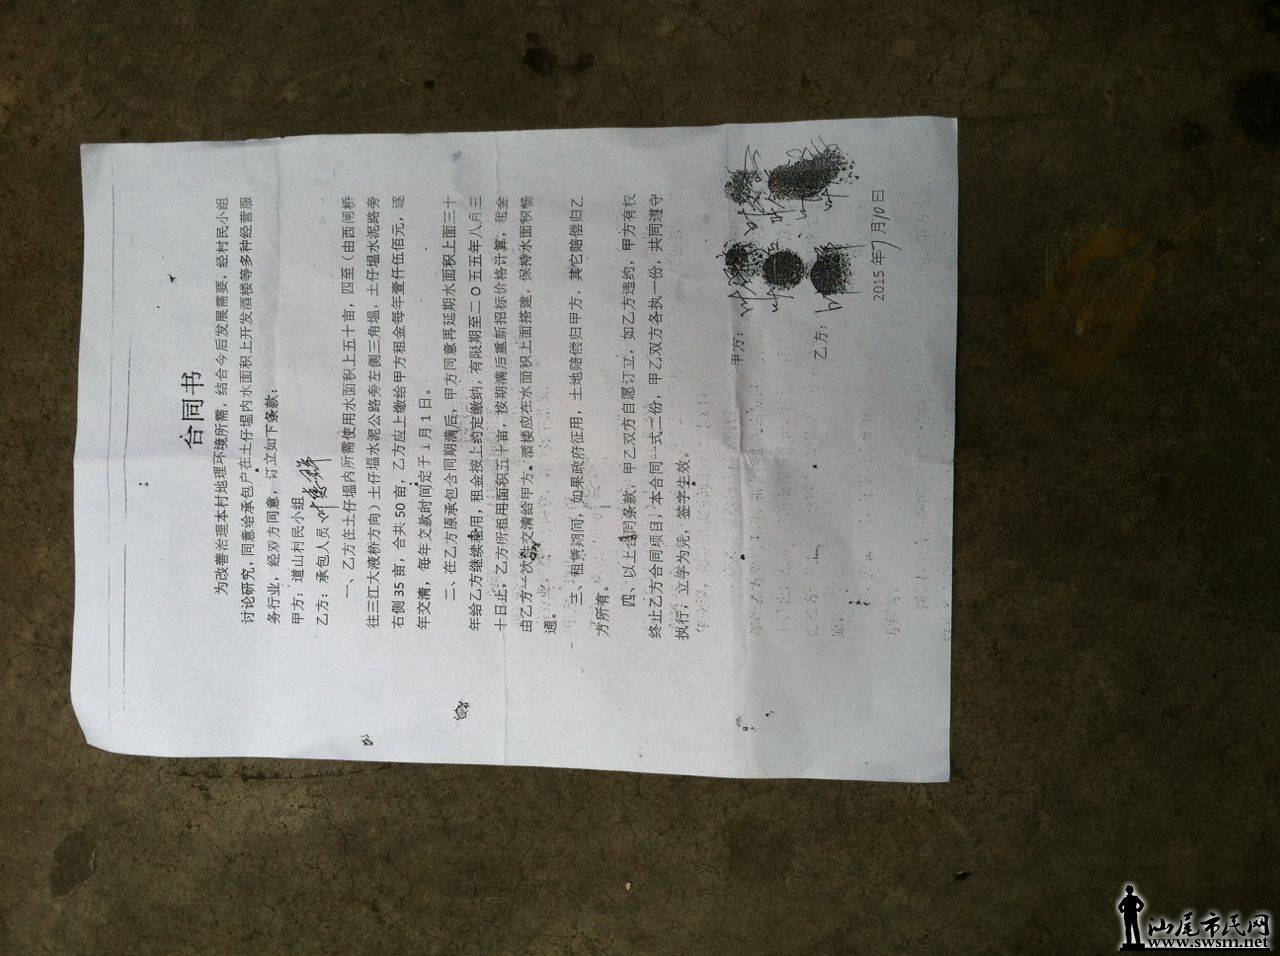 合同书
为改善治理本村地理环境所需，结合今后发展需要，经村民小组
讨论研究，同意给承包户在土仔塭内水面积上开发酒楼等多种经营服
务行业，经双方同意，订立如下条款：
甲方：道山村民小组
乙方：承包人员
一、乙方在土仔塭内所需使用水面积上五十亩，四至（由西闸桥
往三江大液桥方向）土仔塭水泥公路旁左侧三角塭，土仔塭水泥路旁
右侧35亩，合共50亩，乙方应上缴给甲方租金每年壹仟伍佰元，逐
年交清，每年交款时间定于1月1日。
二、在乙方原承包合同期满后，甲方同意再延期水面积上面三十
年给乙方继续租用，租金按上约定缴纳，有限期至二O五五年八月三
十日止，乙方所租用面积五十亩，按期满后重新招标价格计算，租金
由乙方一次年交清给甲方。酒楼应在水面积上面搭建，保持水面积畅
通。
三、租赁期间，如果政府征用，土地赔偿归甲方，其它赔偿归乙
方所有。
四、以上合同条款，甲乙双方自愿订立，如乙方违约，甲方有权
终止乙方合同项目，本合同一式二份，甲乙双方各执一份，共同遵守
执行，立字为凭，签字生效。
甲方：
乙方：
2015年7月10日
汕尾市民网
www.swsm.net